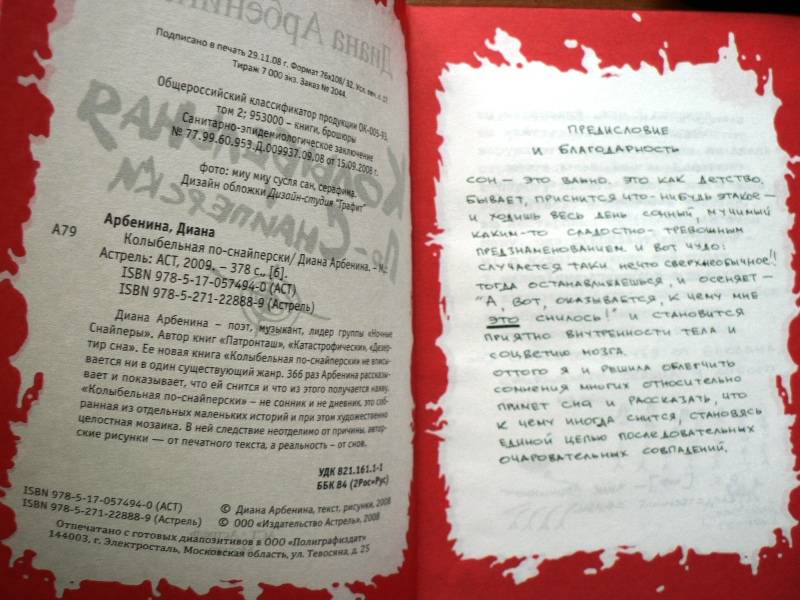 Подписано в печать 29.11.08 г. Формат 76х108/32. Усл. печ. л.
Тираж 7 000 экз. Заказ № 2044.
Общероссийский классификатор продукции ОК-005-93,
том 2; 953000 – книги, брошюры
Санитарно-эпидемиологическое заключение
№ 77.99.60.953.Д.009937.09.08 от 15.09.2008 г.
фото: миу миу сусля сан, серафина.
Дизайн обложки Дизайн-студия "Графит"
Арбенина, Диана
А79 Колыбельная по-снайперски/ Диана Арбенина. – М.:
Астрель: АСТ, 2009. – 378 с., [6].
ISBN 978-5-17-057494-0 (АСТ)
ISBN 978-5-271-22888-9 (Астрель)
Диана Арбенина – поэт, музыкант, лидер группы «Ночные
Снайперы». Автор книг «Патронташ», «Катастрофически», «Дезер-
тир сна». Ее новая книга «Колыбельная по-снайперски» не вписы-
вается ни в один существующий жанр. 366 раз Арбенина рассказы-
вает и показывает, что ей снится и что из этого получается наяву.
«Колыбельная по-снайперски» – не сонник и не дневник, это соб-
ранная из отдельных маленьких историй и при этом художественно
целостная мозаика. В ней следствие неотделимо от причины, автор-
ские рисунки — от печатного текста, а реальность – от снов.
УДК 821.161.1-1
ББК 84 (2Рос=Рус)
ISBN 978-5-17-057494-0 (АСТ)
ISBN 978-5-271-22888-9 (Астрель)
© Диана Арбенина, текст, рисунки, 2008
© ООО «Издательство Астрель», 2008
Отпечатано с готовых диапозитивов в ООО «Полиграфиздат»
144003, г. Электросталь, Московская область, ул. Тевосяна, д. 25
ПРЕДИСЛОВИЕ
И БЛАГОДАРНОСТЬ
СОН — ЭТО ВАЖНО. ЭТО КАК ДЕТСТВО.
БЫВАЕТ, ПРИСНИТСЯ ЧТО-НИБУДЬ ЭТАКОЕ —
И ХОДИШЬ ВЕСЬ ДЕНЬ СОННЫЙ, МУЧИМЫЙ
КАКИМ-ТО СЛАДОСТНО-ТРЕВОЖНЫМ
ПРЕДЗНАМЕНОВАНИЕМ. И ВОТ ЧУДО:
СЛУЧАЕТСЯ ТАКИ НЕЧТО СВЕРХНЕОБЫЧНОЕ!!
ТОГДА ОСТАНАВЛИВАЕШЬСЯ, И ОСЕНЯЕТ —
"А, ВОТ, ОКАЗЫВАЕТСЯ, К ЧЕМУ МНЕ
ЭТО СНИЛОСЬ!" И СТАНОВИТСЯ
ПРИЯТНО ВНУТРЕННОСТИ ТЕЛА И
СОЦВЕТИЮ МОЗГА.
ОТТОГО Я И РЕШИЛА ОБЛЕГЧИТЬ
СОМНЕНИЯ МНОГИХ ОТНОСИТЕЛЬНО
ПРИМЕТ СНА И РАССКАЗАТЬ, ЧТО
К ЧЕМУ ИНОГДА СНИТСЯ, СТАНОВЯСЬ
ЕДИНОЙ ЦЕПЬЮ ПОСЛЕДОВАТЕЛЬНЫХ
ОЧАРОВАТЕЛЬНЫХ СОВПАДЕНИЙ.